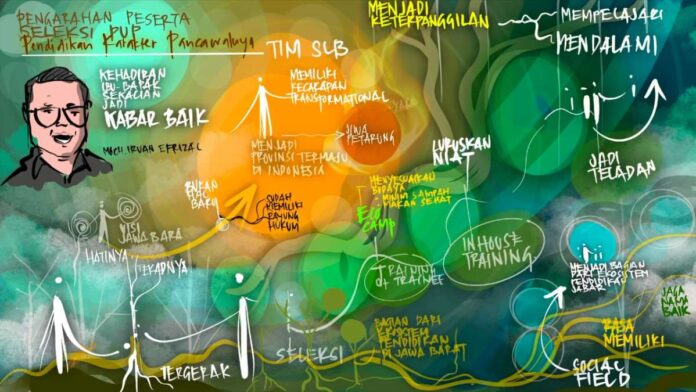 PENGARAHAN PESERTA
SELEKSI PUP
Pendidikan Karakter Pancawaluya
TIM SLB
KEHADIRAN
IBU-BAPAK
SEKALIAN
JADI
KABAR BAIK
MOCH. IRVAN EFRIZAL
MENJADI
KETERPANGGILAN
MEMPELAJARI
MENDALAMI
MEMILIKI
KECAKAPAN
TRANSFORMATIONAL
MENJADI
PROVINSI TERMAJU
DI INDONESIA
JIWA
PETARUNG
LURUSKAN
NIAT
JADI
TELADAN
BUKAN
HAL
BARU
SUDAH
MEMILIKI
PAYUNG
HUKUM
MENYESUAIKAN
BUDAYA
MINIM SAMPAH
MAKAN SEHAT
ECO
CAMP
VISI
JAWA BARA
HATINYA
TEKADNYA
TERGERAK
TRAINING
OF TRAINEE
INHOUSE
TRAINING
SELEKSI
BAGIAN DARI
EKOSISTEM
PENDIDIKAN
DI JAWA BARAT
MENJADI BAGIAN
DARI EKOSISTEM
PENDIDIKAN
JABAR
JAGA
NAMA
BAIK
RASA
MEMILIKI
SOCIAL
FIELD